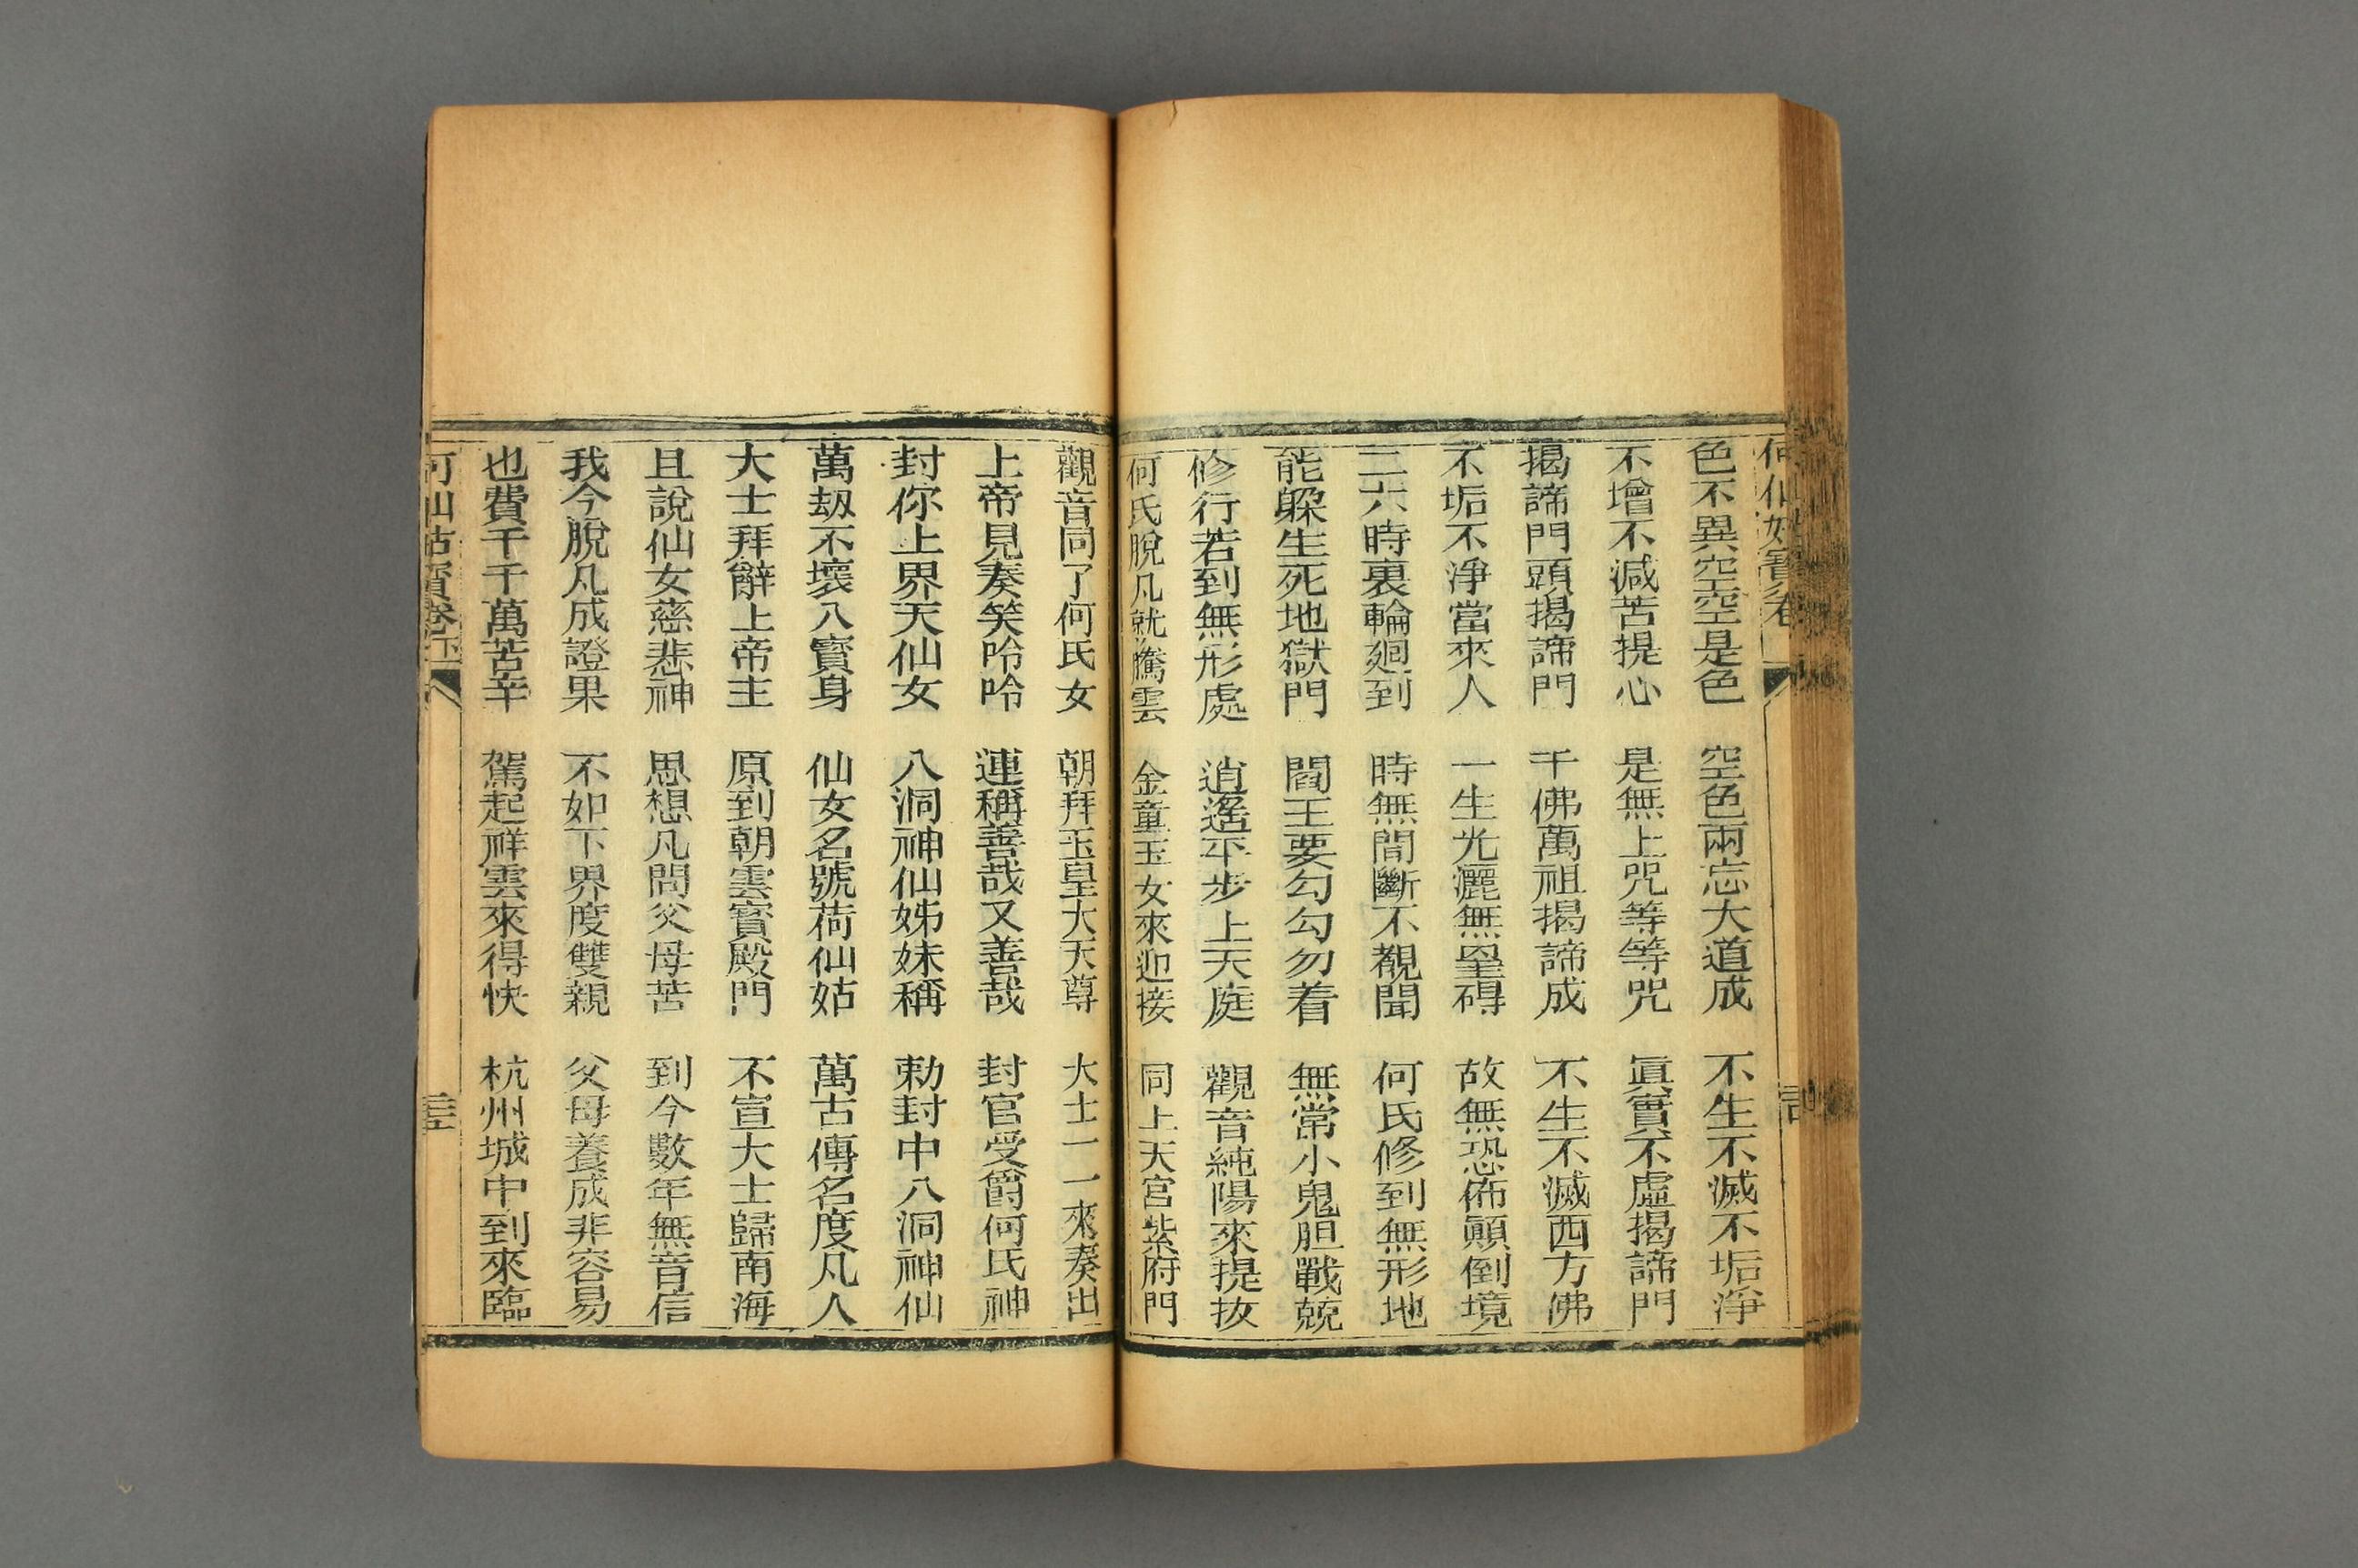 何仙姑寶卷
色不異空空是色　空色兩忘大道成　不生不滅不垢淨
不增不減苦提心　是無上咒等等咒　眞實不虛揭諦門
揭諦門頭揭諦門　千佛萬祖揭諦成　不生不滅西方佛
不垢不淨當來人　一生光灑無罣碍　故無恐佈顚倒境
二六時裏輪廻到　時無間斷不覩聞　何氏修到無形地
能躱生死地獄門　閻王要勾勾勿着　無常小鬼胆戰兢
修行若到無形處　逍遙平步上天庭　觀音純陽來提拔
何氏脫凡就騰雲　金童玉女來迎接　同上天宮紫府門
觀音同了何氏女　朝拜玉皇大天尊　大士一一來奏出
上帝見奏笑吟吟　連稱善哉又善哉　封官受爵何氏神
封你上界天仙女　八洞神仙姊妹稱　勅封中八洞神仙
萬刼不壞八寶身　仙女名號荷仙姑　萬古傳名度凡人
大士拜辭上帝主　原到朝雲寶殿門　不宣大士歸南海
且說仙女慈悲神　思想凡間父母苦　到今數年無音信
我今脫凡成證果　不如下界度雙親　父母養成非容易
也費千千萬苦辛　駕起祥雲來得快　杭州城中到來臨
何仙姑寶卷　三五